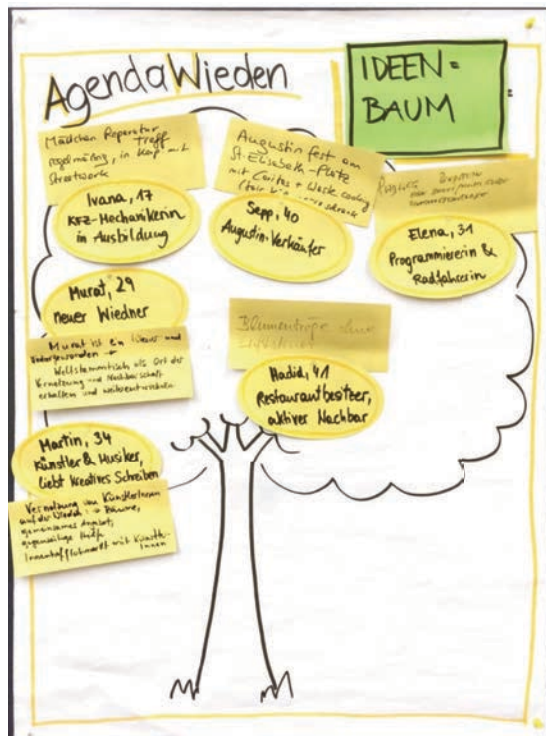 Agenda Wieden
IDEEN=
BAUM
Mädchen Reparatur
Treff
regelmäßig, in Koop mit
Streetwork
Ivana, 17
KFZ-Mechanikerin
in Ausbildung
Augustinfest am
St-Elisabeth-Platz
mit Caritas +
Sepp, 40
Augustin-Verkäufer
Elena, 31
Programmiererin &
Radfahrerin
Murat, 29
neuer Wiedner
Murat ist ein
Weltstammtisch als Ort der
Vernetzung und Nachbarschaft
erhalten und weiterentwickeln
Blumentröge ohne
Hadid, 41
Restaurantbesitzer,
aktiver Nachbar
Martin, 34
Künstler & Musiker,
liebt kreatives Schreiben
Vernetzung von KünstlerInnen
auf der Wieden → Räume,
gemeinsames Angebot,
gegenseitige Hilfe
Innenhofflohmarkt mit Künstler-
Innen